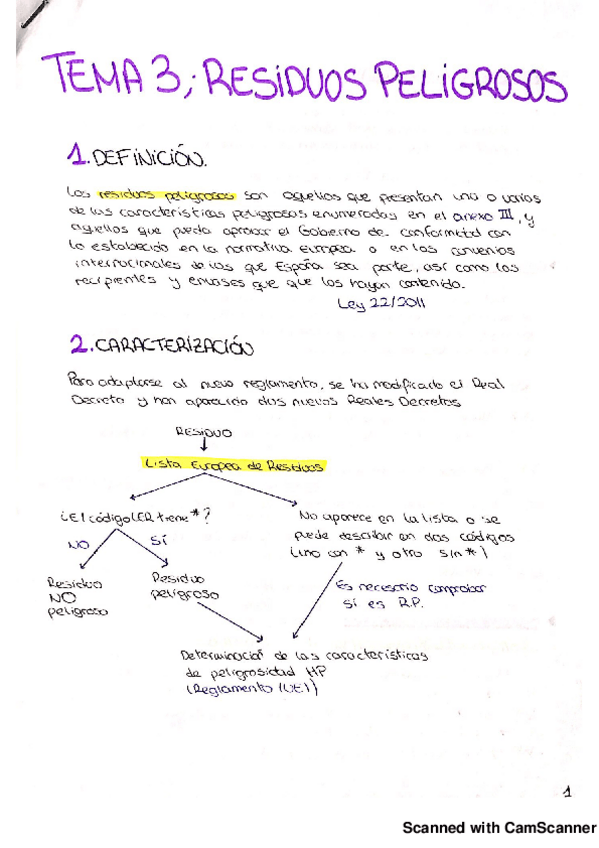 TEMA 3; RESIDUOS PELIGROSOS
1. DEFINICIÓN.
Los residuos peligrosos son aquellos que presentan una o varias
de las características peligrosas enumeradas en el anexo III, y
aquellos que pueda aprobar el Gobierno de conformidad con
lo establecido en la normativa europea o en los convenios
internacionales de los que España sea parte, así como los
recipientes y envases que que los hayan contenido.
Ley 22/2011
2. CARACTERIZACIÓN
Para adaptarse al nuevo reglamento, se ha modificado el Real
Decreto y han aparecido dos nuevos Reales Decretos
RESIDUO
Lista Europea de Residuos
¿El código LER tiene *?
No aparece en la lista o se
puede describir en dos códigos
(uno con * y otro sin *)
NO
SÍ
Residuo
NO
peligroso
Residuo
peligroso
Es necesario comprobar
si es R.P.
Determinación de las características
de peligrosidad HP
(Reglamento (UE))
1
Scanned with CamScanner